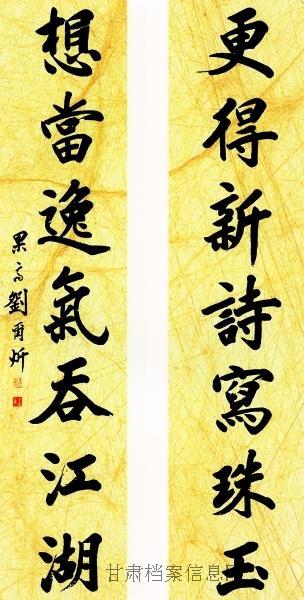 更得新詩寫珠玉
想當逸氣吞江湖
果齋劉爾炘
甘肃档案信息网